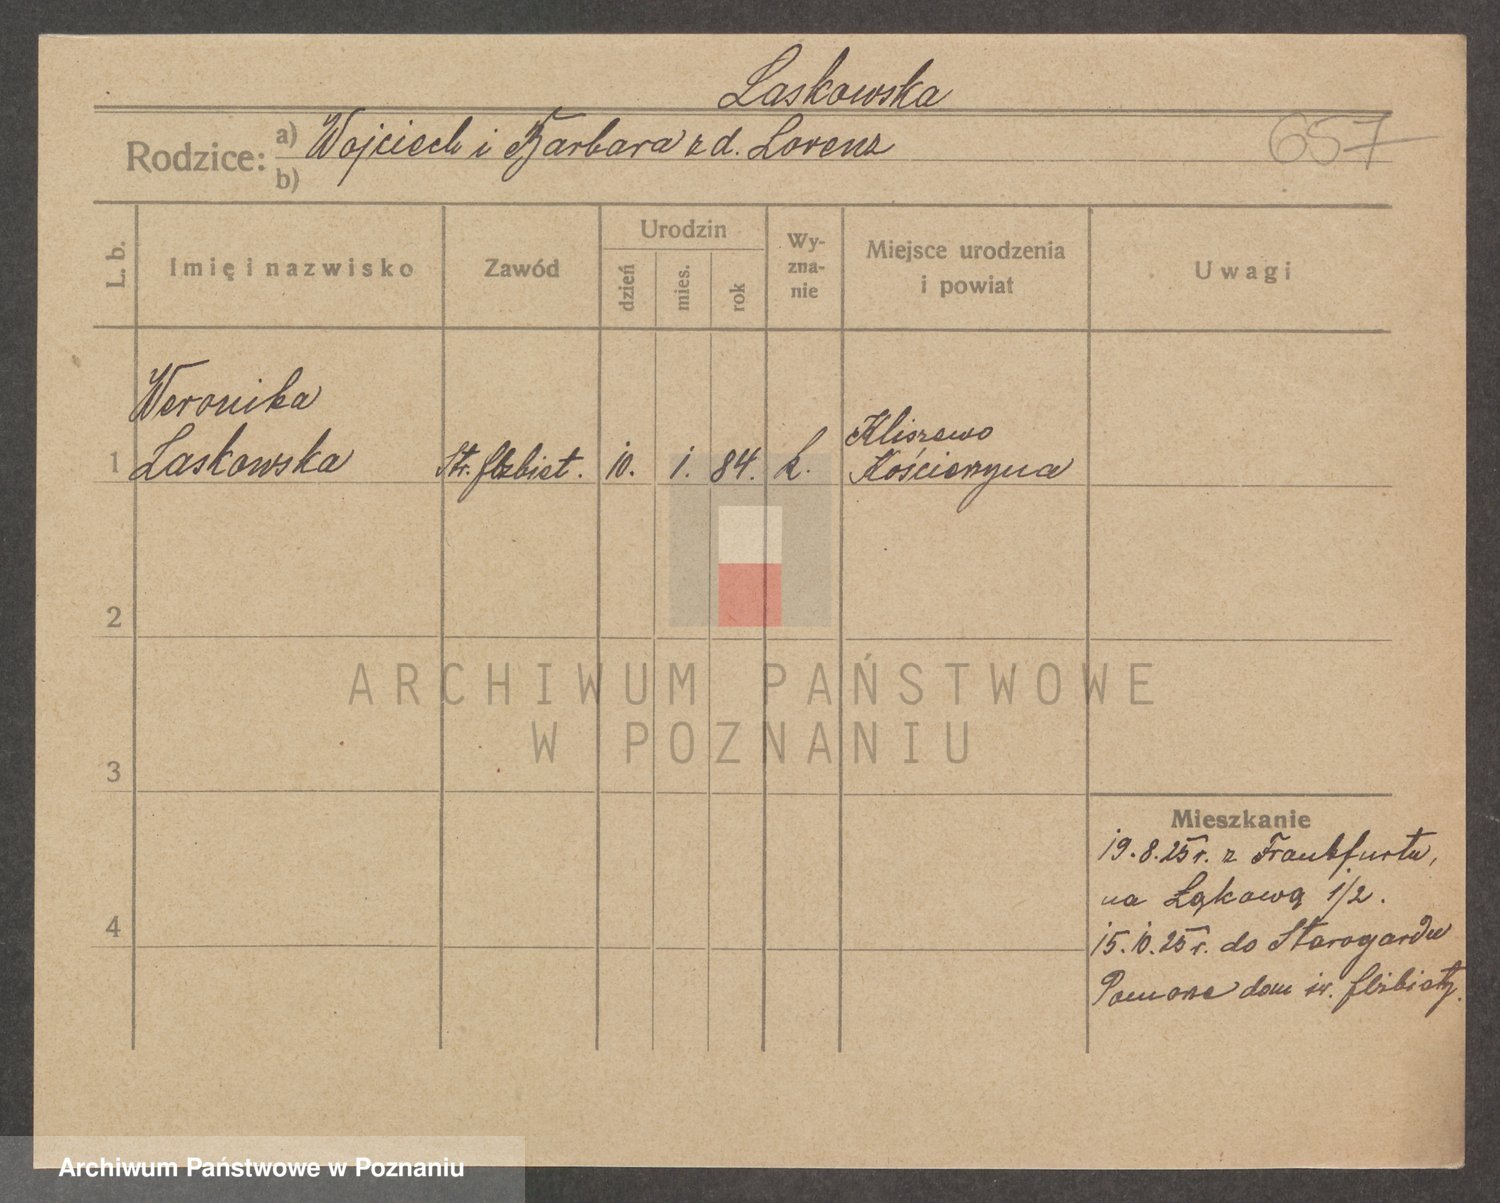 Laskowska
Rodzice: a) Wojciech i Barbara z d. Lorenz
b)
657
L. b. Imię i nazwisko Zawód Urodzin dzień mies. rok Wy-zna-nie Miejsce urodzenia i powiat Uwagi
Weronika
1 Laskowska Str. Elżbiet. 10. 1. 84. k. Kliszewo
Kościerzyna
2
3
4
Mieszkanie
19.8.25 r. z Frankfurtu,
na Łąkową 1/2.
15.10.25 r. do Starogardu
Pomorze dom św. Elżbiety.
ARCHIWUM PAŃSTWOWE
W POZNANIU
Archiwum Państwowe w Poznaniu